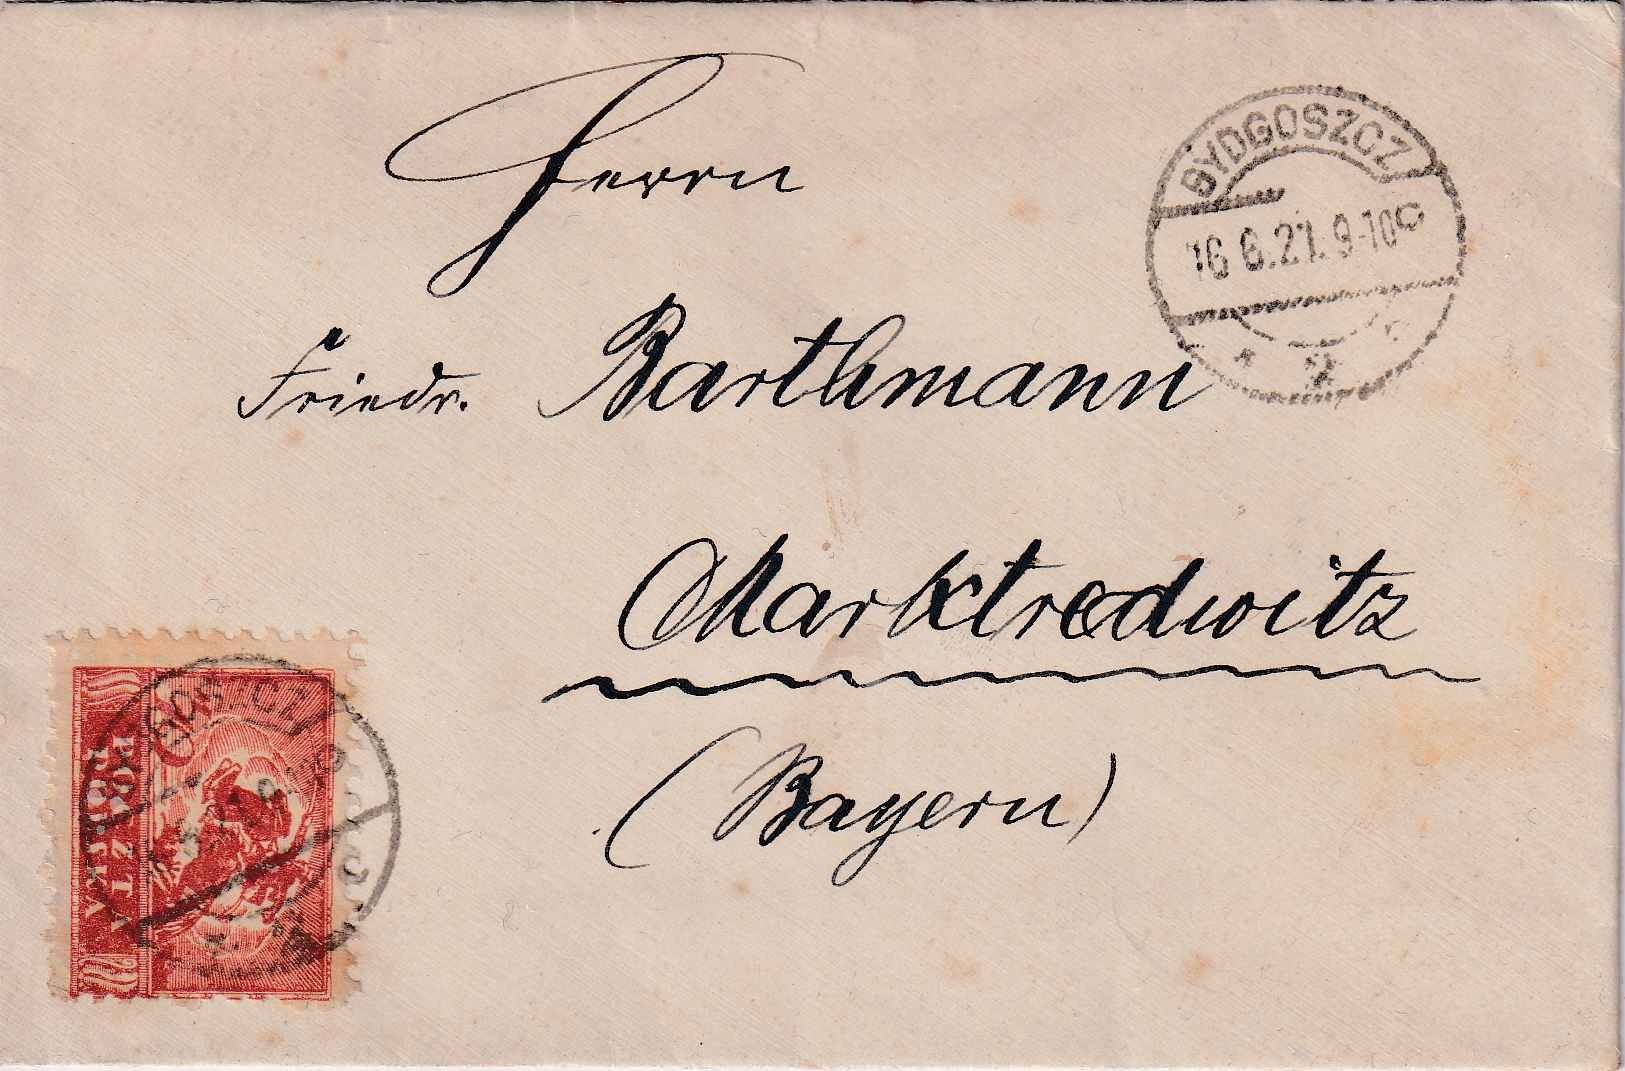 Herrn
Friedr. Barthmann
Marktredwitz
(Bayern)
BYDGOSZCZ
16 6.21. 9-10
* 2 *
POCZTA
POLSKA
BYDGOSZCZ